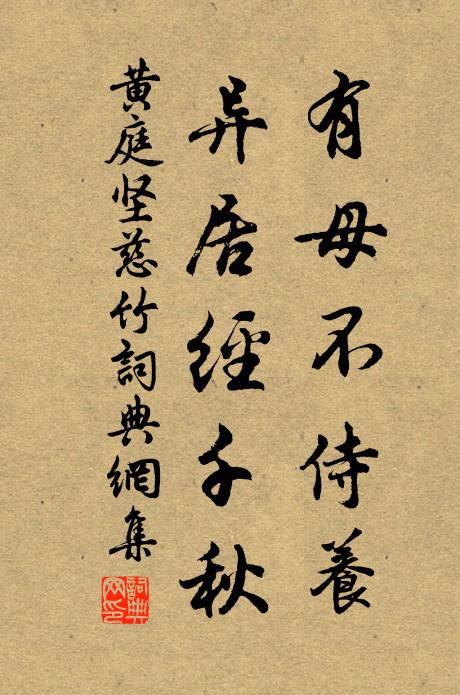 有母不侍養
异居經千秋
黄庭坚慈竹詞典網集
詞典网印